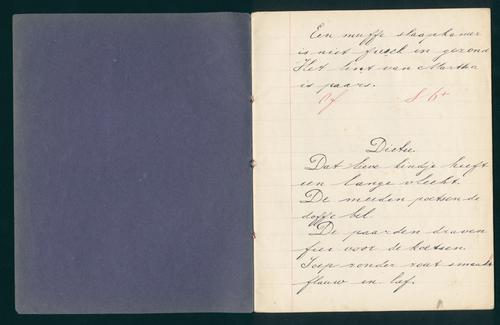 Een muffe slaapkamer
is niet frisch en gezond
Het lint van Martha
is paars.
8 6+
Dictee.
Dat lieve kindje heeft
een lange vlecht.
De meiden poetsen de
doffe bel.
De paarden draven
fier voor de koetsen.
Soep zonder zout smaakt
flauw en laf.